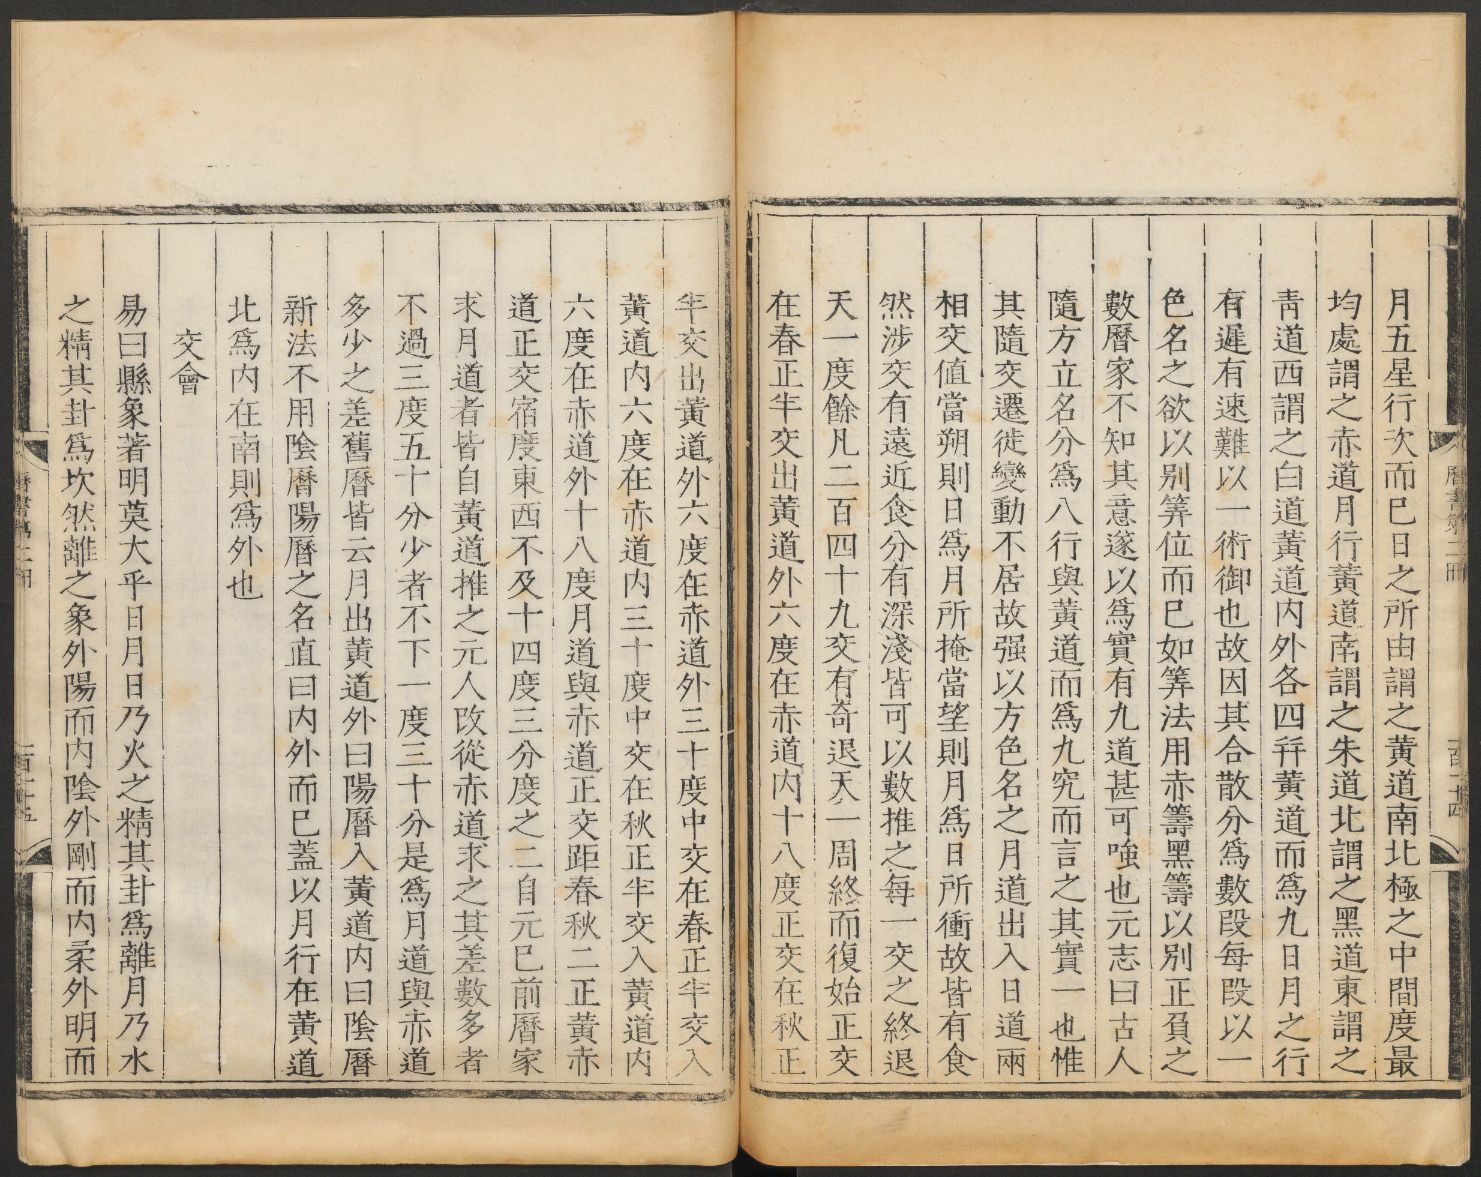 月五星行次而已日之所由謂之黃道南北極之中間度最
均處謂之赤道月行黃道南謂之朱道北謂之黑道東謂之
靑道西謂之白道黃道內外各四幷黃道而爲九日月之行
有遲有速難以一術御也故因其合散分爲數段每段以一
色名之欲以别筭位而已如筭法用赤籌黑籌以别正負之
數曆家不知其意遂以爲實有九道甚可嗤也元志曰古人
隨方立名分爲八行與黃道而爲九究而言之其實一也惟
其隨交遷徙變動不居故强以方色名之月道出入日道兩
相交值當朔則日爲月所掩當望則月爲日所衝故皆有食
然涉交有遠近食分有深淺皆可以數推之每一交之終退
天一度餘凡二百四十九交有奇退天一周終而復始正交
在春正半交出黃道外六度在赤道內十八度正交在秋正
半交出黃道外六度在赤道外三十度中交在春正半交入
黃道內六度在赤道內三十度中交在秋正半交入黃道內
六度在赤道外十八度月道與赤道正交距春秋二正黃赤
道正交宿度東西不及十四度三分度之二自元已前曆家
求月道者皆自黃道推之元人改從赤道求之其差數多者
不過三度五十分少者不下一度三十分是爲月道與赤道
多少之差舊曆皆云月出黃道外曰陽曆入黃道內曰陰曆
新法不用陰曆陽曆之名直曰內外而已蓋以月行在黃道
北爲內在南則爲外也
交會
易曰縣象著明莫大乎日月日乃火之精其卦爲離月乃水
之精其卦爲坎然離之象外陽而內陰外剛而內柔外明而